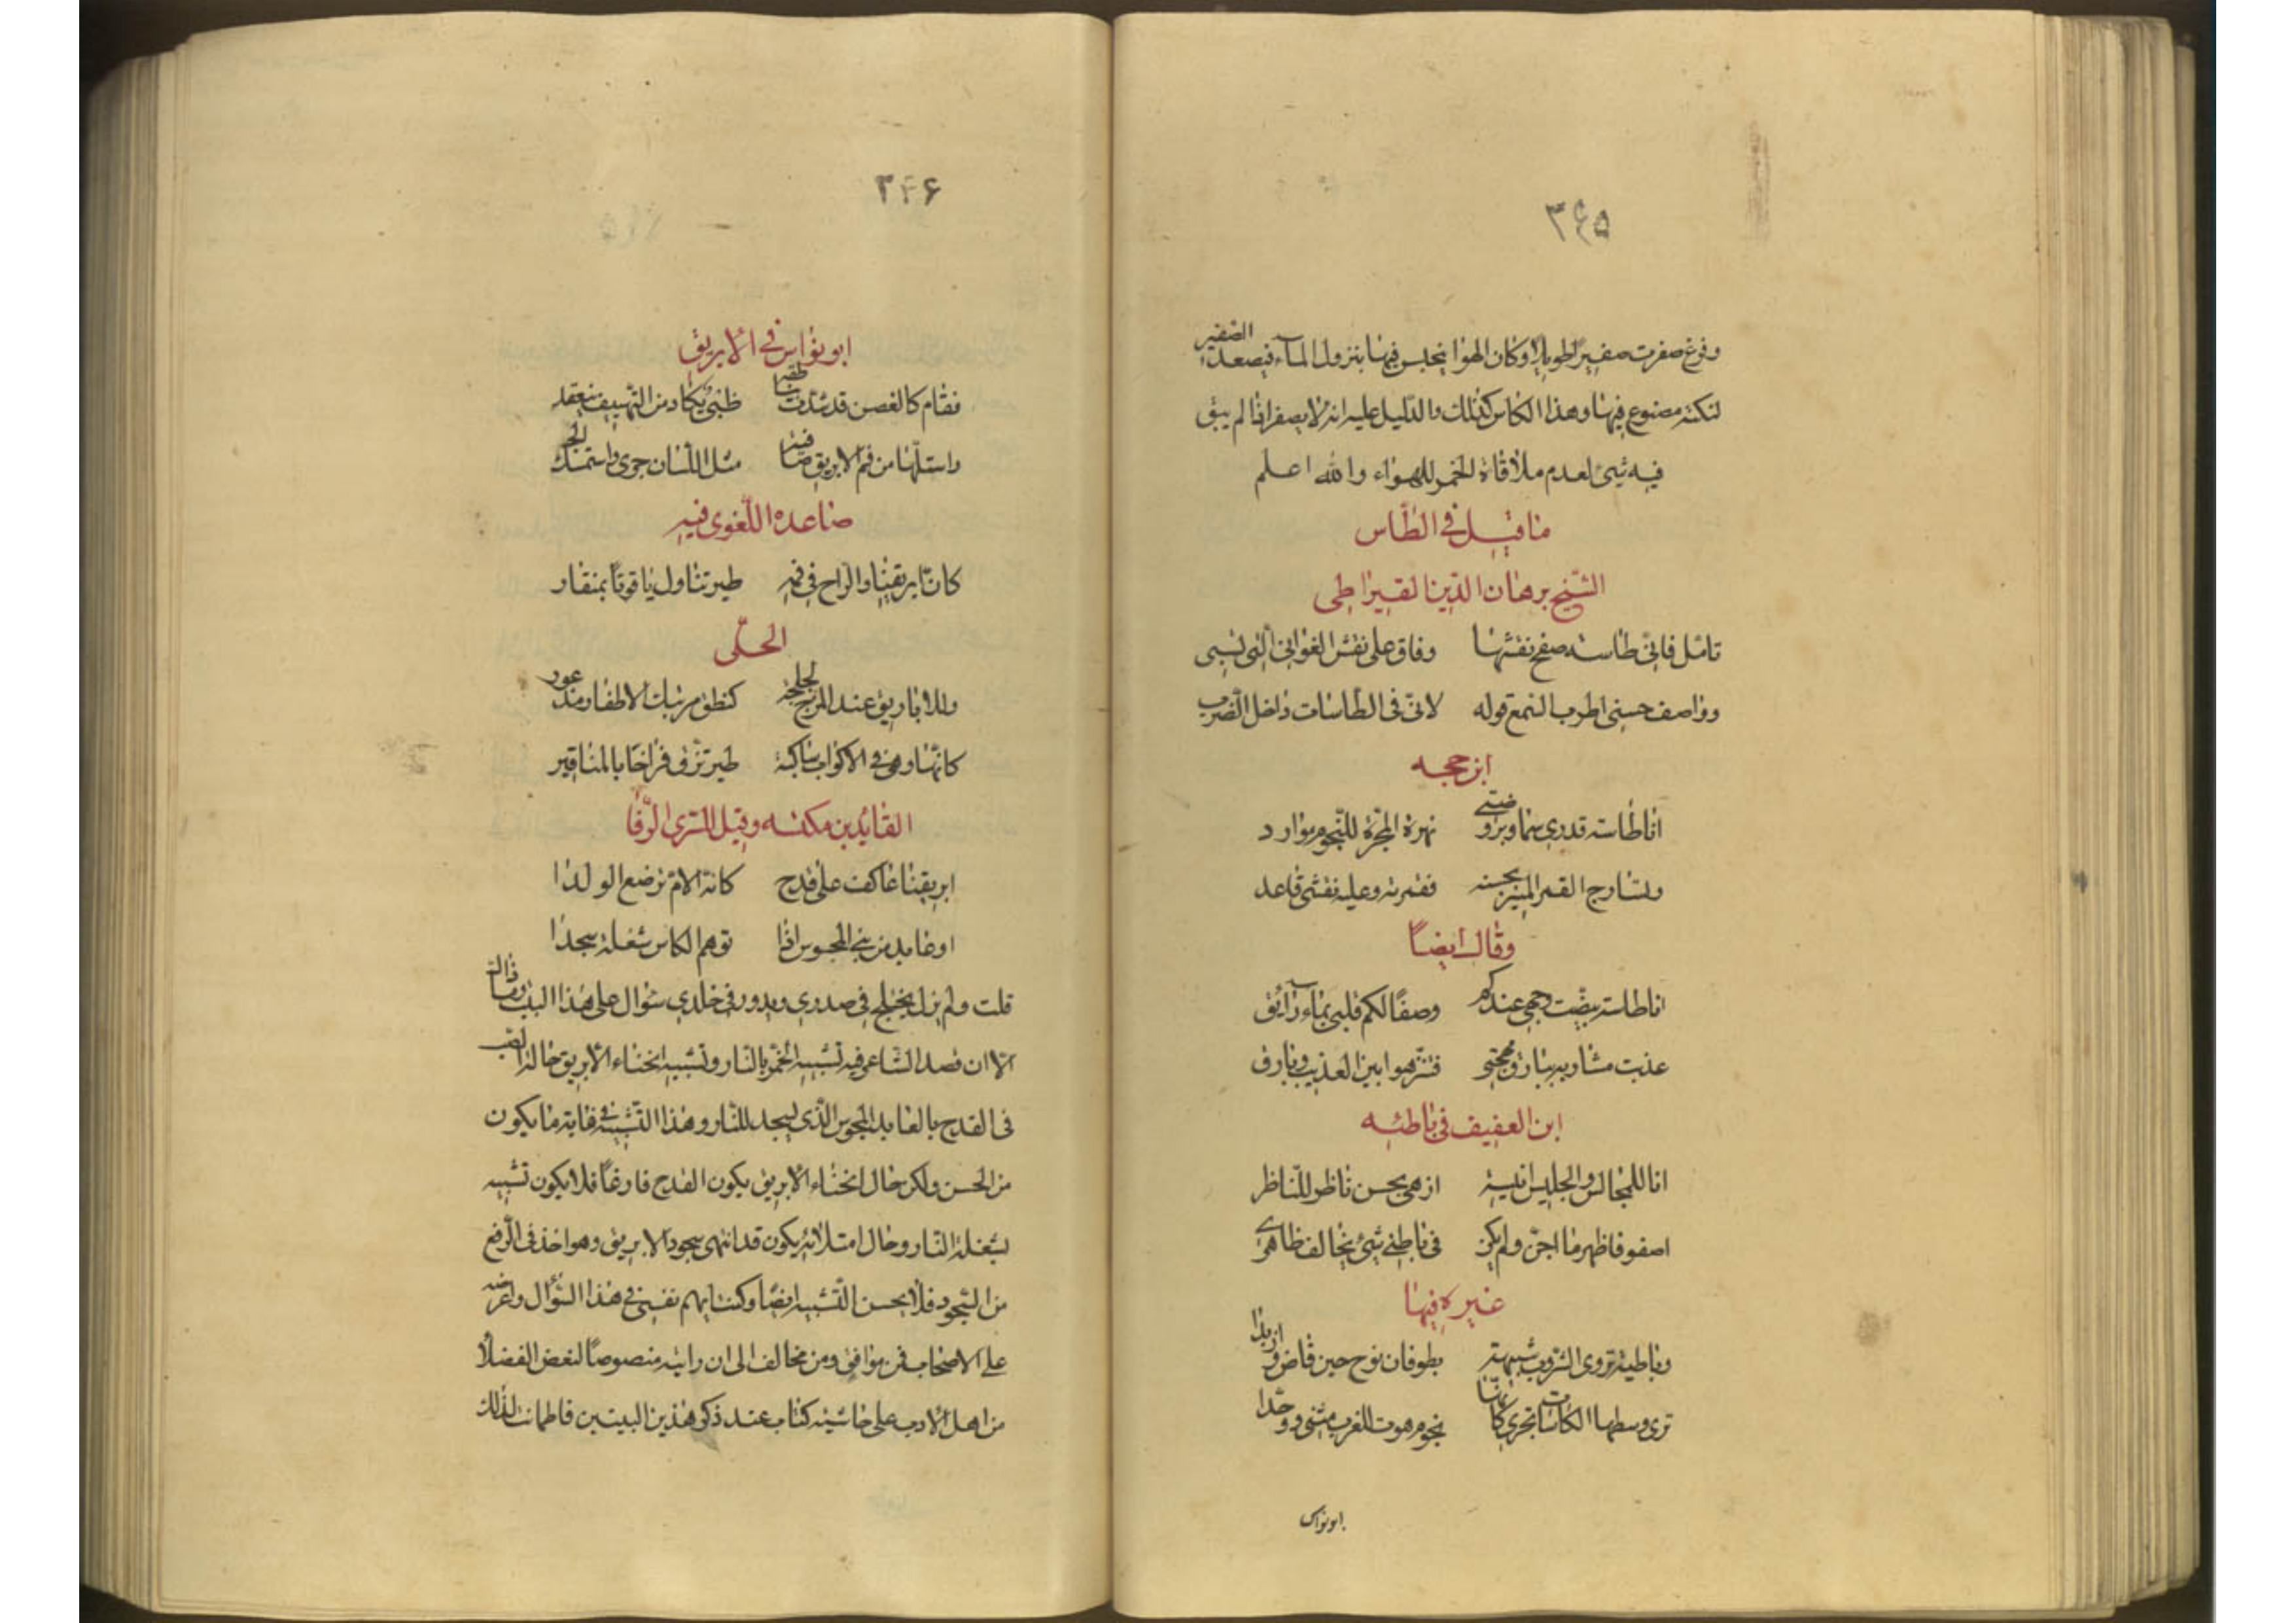 ۳۶۵
وفرغ صفرت صفيرًا طويلا وكان الهوا ينحبس فيها بنزول الماء فيصعد الصفير
لنكتة مصنوع فيها وهذا الكاس كذلك والدّليل عليه انه لا يصفر اذا لم يبق
فيه شئ لعدم ملاقاة الخمر للهواء والله اعلم
ما قيل في الطّاس
الشّيخ برهان الدّين القيراطى
تامّل فانّى طاسة صفح نقشها وفاق على نقش الغوانى الّتى تسبى
وواصف حسنى اطرب السّمع قوله لانّى فى الطّاسات داخل الضّرب
ابن حجه
انا طاسة قدرى سما وبروضتى نهرة المجرّة للنّجوم موارد
ولسارج القمر المنير بحسنه فقمرته وعليه نقشى قاعد
وقال ايضاً
انا طاسة بيضت وجهى عندكم وصفا لكم قلبى بماء رائق
عذبت مشاربه ببارق مهجتى فتنزهوا بين العذيب وبارق
ابن العفيف فى باطئه
انا للمجالس والجليس انيسة ازهى بحسن ناظر للنّاظر
اصفو فاظهر ما اجنّ ولم يكن فى باطنى شئ يخالف ظاهرى
غيره فيها
وباطية تروى الشّروب شبهتها بطوفان نوح حين فاض وازبدا
ترى وسطها الكاسات تجرى كانّها نجوم هوت للغرب مثنى ووحّدا
ابو نواس
۳۴۶
ابو نواس في الابريق
فقام كالغصن قد شدّت مناطقه ظبى يكاد من التّهييف ينعقد
واستلّها من فم الابريق صافية مثل اللّسان جرى واستمسك الجسد
صاعده اللّغوى فيه
كانّ ابريقنا والرّاح فى فمه طير تناول ياقوتًا بمنقار
الحلّى
وللاباريق عند المزج لجلجة كنطق مرتبك الالفاظ مذعور
كانّها وهى في الاكواب ساكبة طير تزقّ فراخًا بالمناقير
القايد بن مكنسه وقيل للسّرى الرّفا
ابريقنا عاكف على قدح كانه الامّ ترضع الولدا
او عابد من بنى المجوس اذا توهم الكاس شعلة سجدا
قلت ولم يزل يختلج في صدرى ويدور فى خلدى سؤال على هذا البيت وما ذاك
الّا ان قصد الشّاعر فيه تشبيه الخمر بالنّار وتشبيه انحناء الابريق حالة الصّب
فى القدح بالعابد المجوس الّذى يسجد للنّار وهذا التّشبيه فى غاية ما يكون
من الحسن ولكن حال انحناء الابريق يكون القدح فارغًا فلا يكون تشبيه
بشعلة النّار وحال امتلائه يكون قد انتهى سجود الابريق وهو اخذ فى الرّفع
من السّجود فلا يحسن التّشبيه ايضًا وكنت اتّهم نفسى في هذا السّؤال واعرضه
على الاصحاب فمن موافق ومن مخالف الى ان رايته منصوصًا لبعض الفضلا
من اهل الادب على حاشية كتاب عند ذكر هذين البيتين فاطمانت لذلك